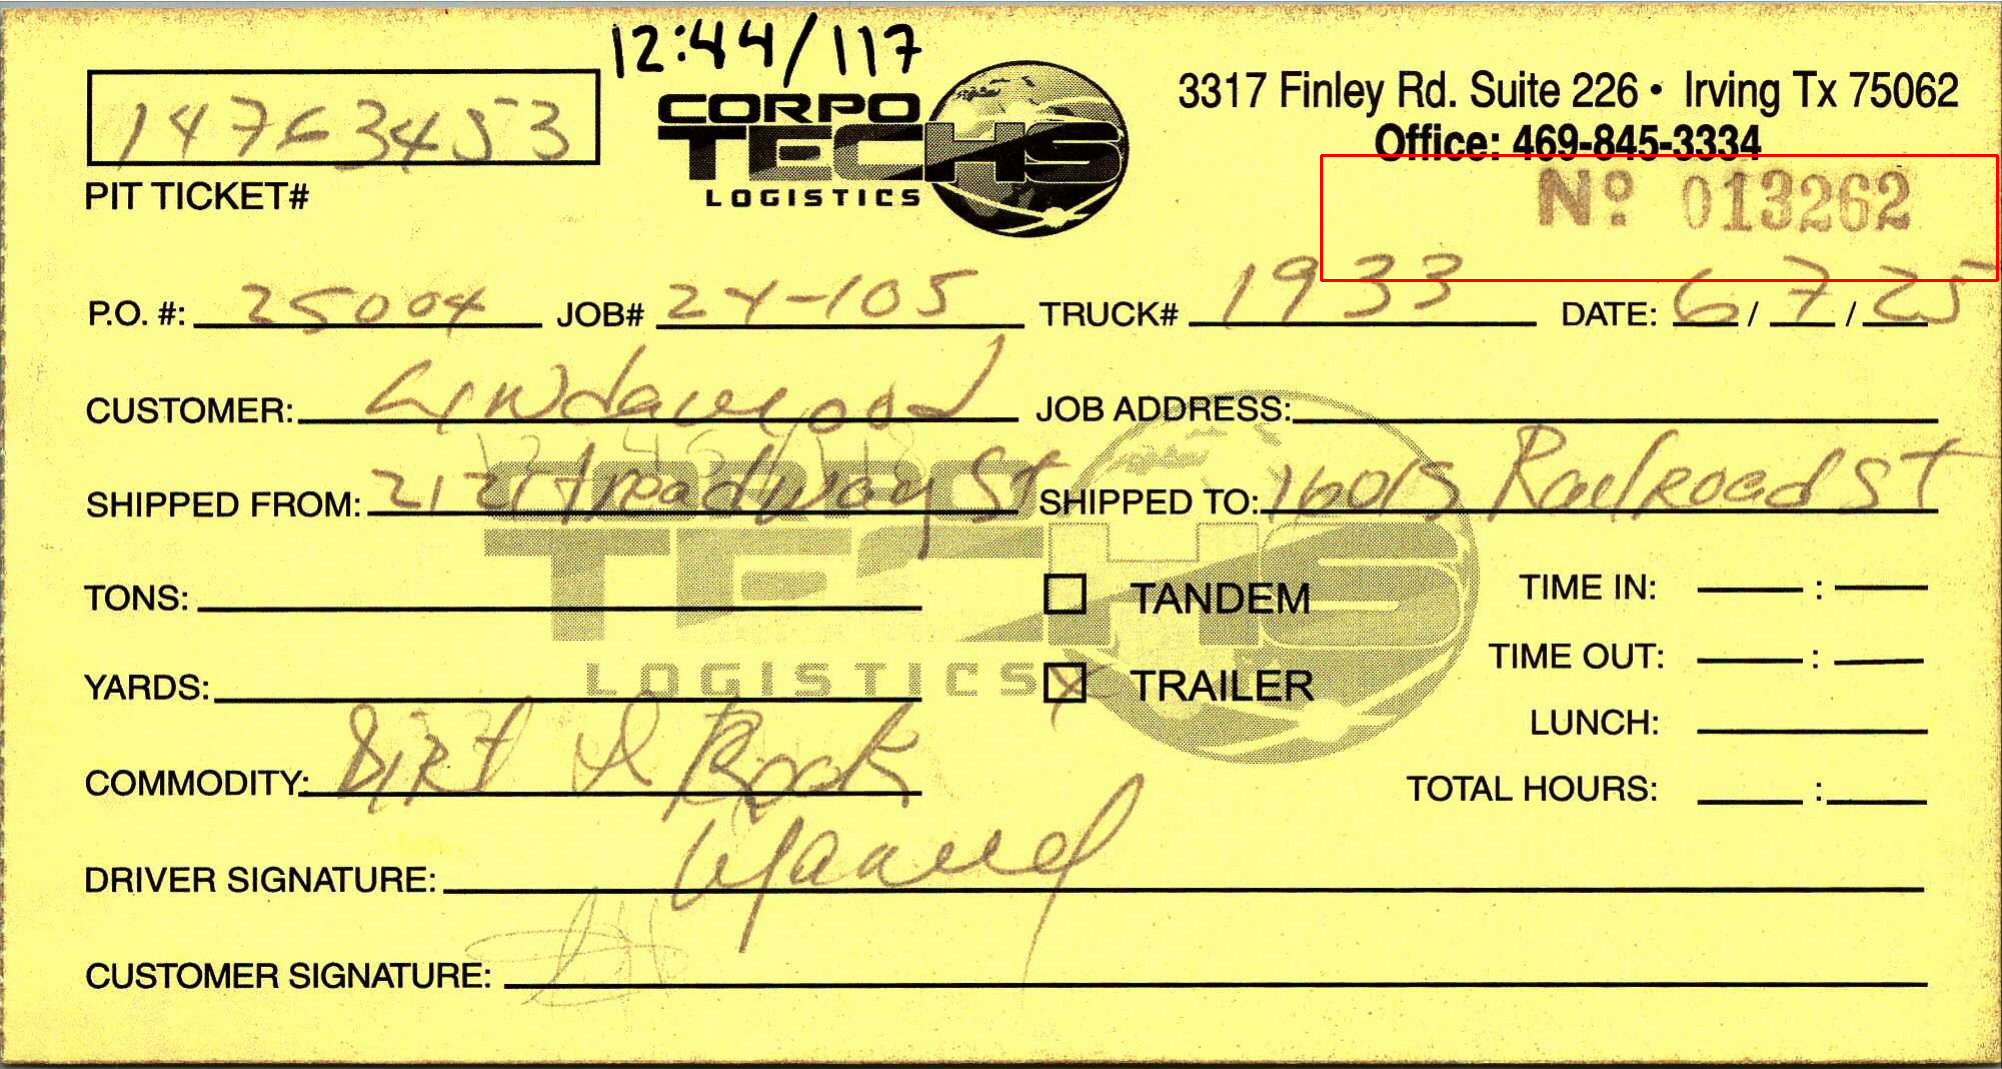 12:44/117
14763453
PIT TICKET#
CORPO
TECHS
LOGISTICS
3317 Finley Rd. Suite 226 • Irving Tx 75062
Office: 469-845-3334
Nº 013262
P.O. #: 25004 JOB# 24-105 TRUCK# 1933 DATE: 6/7/25
CUSTOMER: JOB ADDRESS:
SHIPPED FROM: 2121 treadway St SHIPPED TO: 1601 S Railroad ST
TONS: TANDEM TIME IN: :
YARDS: X TRAILER TIME OUT: :
LUNCH:
COMMODITY: Dirt & Rock TOTAL HOURS: :
DRIVER SIGNATURE: Manuel
CUSTOMER SIGNATURE:
CORPO
TECHS
LOGISTICS